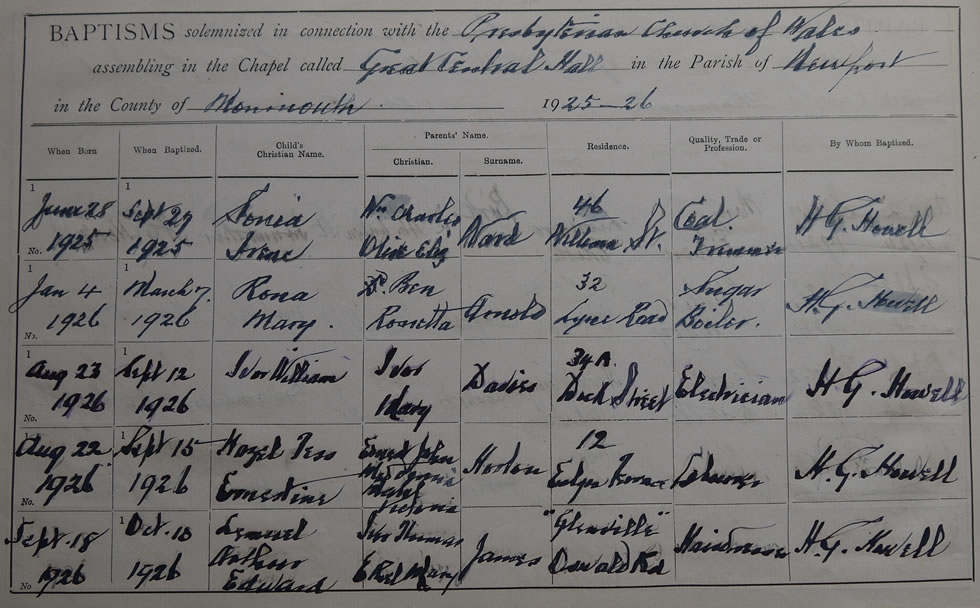 BAPTISMS solemnized in connection with the Presbyterian Church of Wales
assembling in the Chapel called Great Central Hall in the Parish of Newport
in the County of Monmouth 1925-26
When Born
When Baptized.
Child's
Christian Name.
Parents' Name.
Christian.
Surname.
Residence.
Quality, Trade or
Profession.
By Whom Baptized.
1
June 28
No. 1925
1
Sept 27
1925
Sonia
Irene
Wm Charles
Olive Eliz
Ward
46
William St.
Coal
Trimmer
H G. Howell
1
Jan 4
1926
No.
March 7.
1926
Rona
Mary.
Ben
Rosetta
Arnold
32
Lyne Road
Sugar
Boiler.
H. G. Howell
1
Aug 23
1926
No.
1
Sept 12
1926
Ivor William
Ivor
Mary
Davies
34A
Dock Street
Electrician
H G. Howell
1
Aug 22
1926
No.
1
Sept 15
1926
Hazel Tess
Ernestine
Ernest John
Mabel
Victoria
Horton
12
Terrace
Labourer
H. G. Howell
Sept. 18
1926
No
1
Oct. 10
1926
Lemuel
Edward
Ivor Thomas
Ethel Mary
James
"Glenville"
Oswald Rd
H. G. Howell